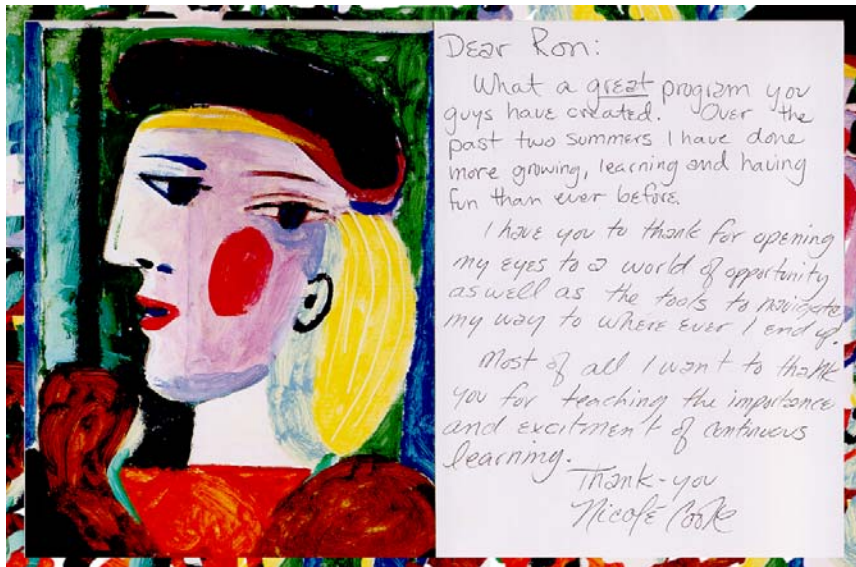 Dear Ron:
What a great program you
guys have created. Over the
past two summers I have done
more growing, learning and having
fun than ever before.
I have you to thank for opening
my eyes to a world of opportunity
as well as the tools to navigate
my way to where ever I end up.
Most of all I want to thank
you for teaching the importance
and excitment of continuous
learning.
Thank-you
Nicole Cooke